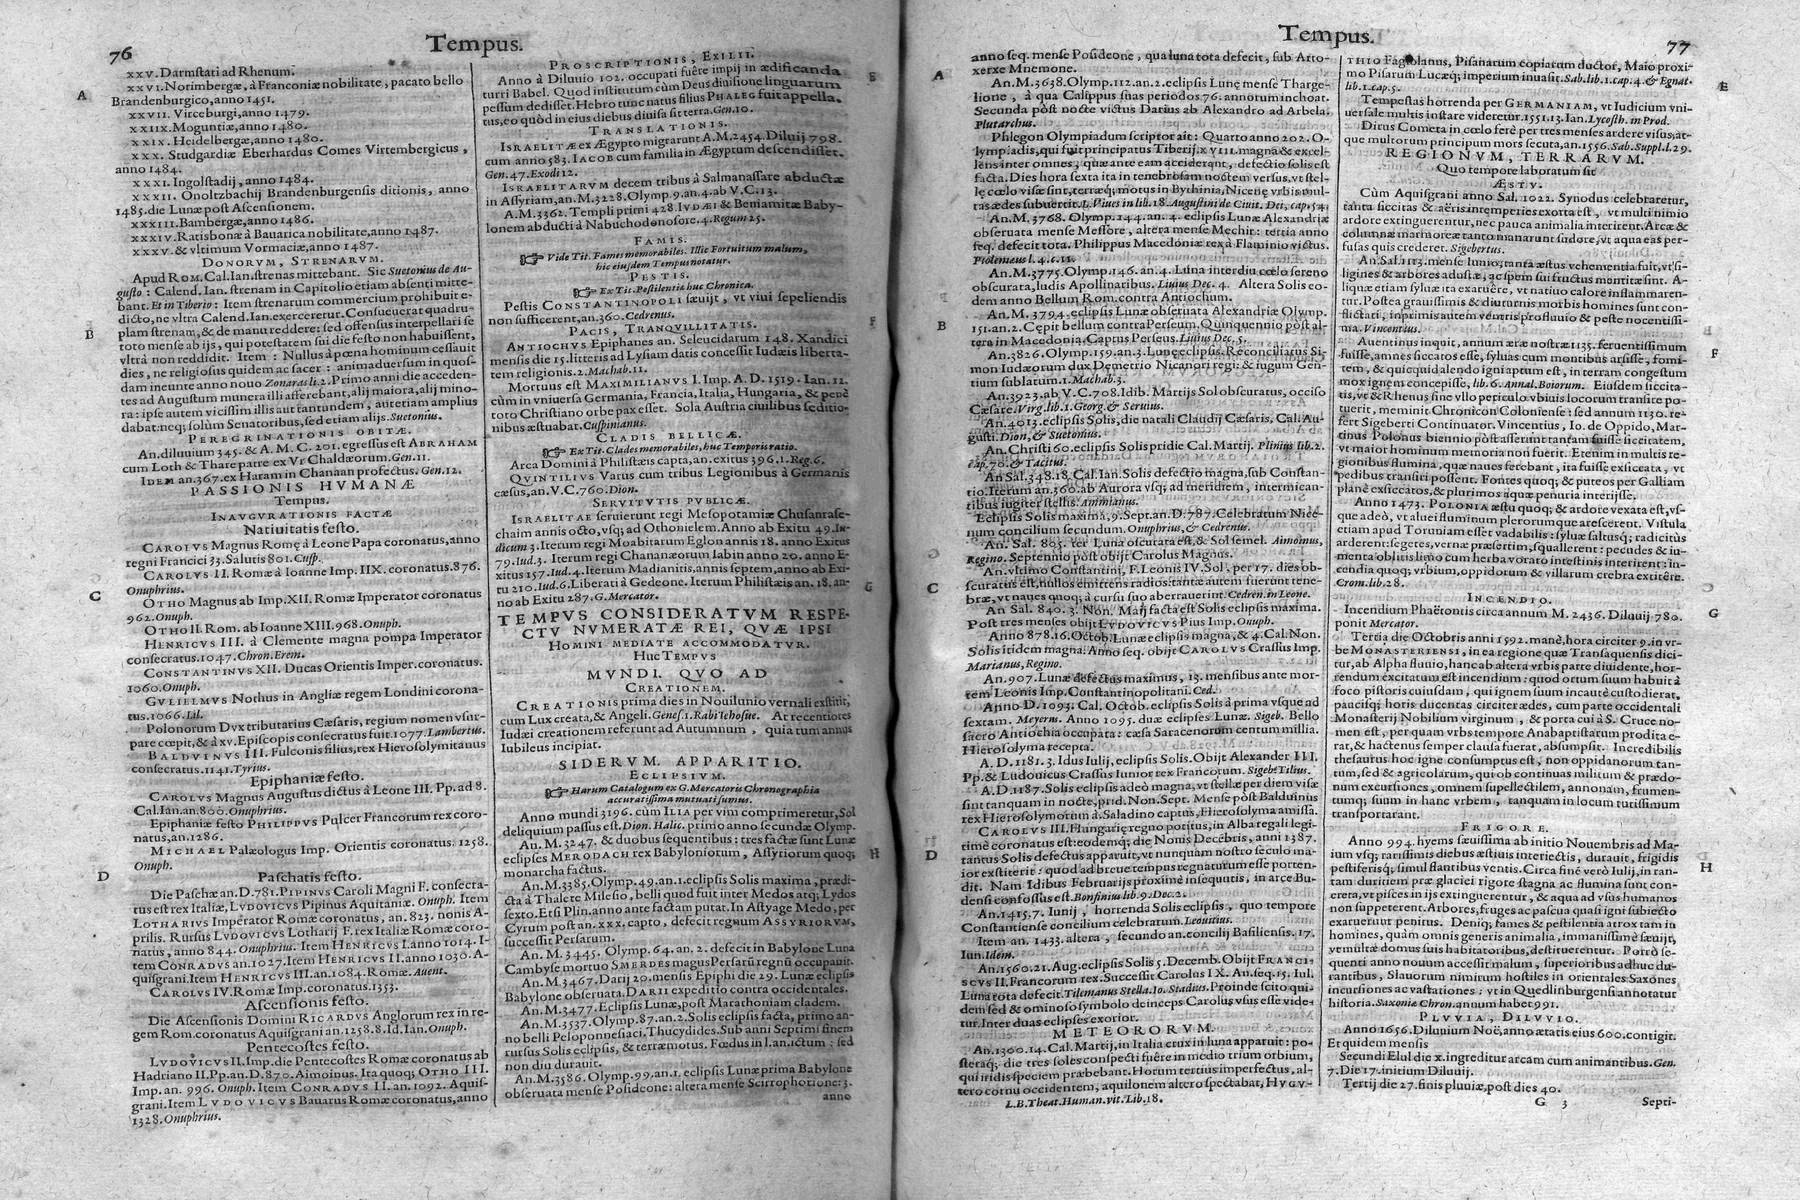 76
Tempus.
XXV. Darmstati ad Rhenum.
XXVI. Norimbergæ, à Franconiæ nobilitate, pacato bello
Brandenburgico, anno 1451.
XXVII. Virceburgi, anno 1479.
XXIIX. Moguntiæ, anno 1480.
XXIX. Heidelbergæ, anno 1480.
XXX. Studgardiæ Eberhardus Comes Virtembergicus,
anno 1484.
XXXI. Ingolstadij, anno 1484.
XXXII. Onoltzbachij Brandenburgensis ditionis, anno
1485. die Lunæ post Ascensionem.
XXXIII. Bambergæ, anno 1486.
XXXIV. Ratisbonæ à Bauarica nobilitate, anno 1487.
XXXV. & vltimum Vormaciæ, anno 1487.
DONORVM, STRENARVM.
Apud ROM. Cal. Ian. strenas mittebant. Sic Suetonius de Au-
gusto: Calend. Ian. strenam in Capitolio etiam absenti mitte-
bant. Et in Tiberio: Item strenarum commercium prohibuit e-
dicto, ne vltra Calend. Ian. exerceretur. Consueuerat quadru-
plam strenam, & de manu reddere: sed offensus interpellari se
toto mense ab ijs, qui potestatem sui die festo non habuissent,
vltrà non reddidit. Item: Nullus à pœna hominum cessauit
dies, ne religiosus quidem ac sacer: animaduersum in quos-
dam ineunte anno nouo Zonaras li. 2. Primo anni die acceden-
tes ad Augustum munera illi afferebant, alij maiora, alij mino-
ra: ipse autem vicissim illis aut tantundem, aut etiam amplius
dabat: neq; solùm Senatoribus, sed etiam alijs. Suetonius.
PEREGRINATIONIS OBITÆ.
An. diluuium 345. & A. M. C. 201. egressus est ABRAHAM
cum Loth & Thare patre ex Vr Chaldæorum. Gen. 11.
IDEM an. 367. ex Haram in Chanaan profectus. Gen. 12.
PASSIONIS HVMANÆ
Tempus.
INAVGVRATIONIS FACTÆ
Natiuitatis festo.
CAROLVS Magnus Romę à Leone Papa coronatus, anno
regni Francici 33. Salutis 801. Cusp.
CAROLVS II. Romæ à Ioanne Imp. IIX. coronatus. 876.
Onuphrius.
OTHO Magnus ab Imp. XII. Romæ Imperator coronatus
962. Onuph.
OTHO II. Rom. ab Ioanne XIII. 968. Onuph.
HENRICVS III. à Clemente magna pompa Imperator
consecratus. 1047. Chron. Erem.
CONSTANTINVS XII. Ducas Orientis Imper. coronatus.
1060. Onuph.
GVLIELMVS Nothus in Angliæ regem Londini corona-
tus. 1066. Lil.
Polonorum DVX tributarius Cæsaris, regium nomen vsur-
pare cœpit, & à xv. Episcopis consecratus fuit. 1077. Lambertus.
BALDVINVS III. Fulconis filius, rex Hierosolymitanus
consecratus. 1141. Tyrius.
Epiphaniæ festo.
CAROLVS Magnus Augustus dictus à Leone III. Pp. ad 8.
Cal. Ian. an. 800. Onuphrius.
Epiphaniæ festo PHILIPPVS Pulcer Francorum rex coro-
natus, an. 1286.
MICHAEL Palæologus Imp. Orientis coronatus. 1258.
Onuph.
Paschatis festo.
Die Paschæ an. D. 781. PIPINVS Caroli Magni F. consecra-
tus est rex Italiæ, LVDOVICVS Pipinus Aquitaniæ. Onuph. Item
LOTHARIVS Imperator Romæ coronatus, an. 823. nonis A-
prilis. Rursus LVDOVICVS Lotharij F. rex Italiæ Romæ coro-
natus, anno 844. Onuphrius. Item HENRICVS I. anno 1014. I-
tem CONRADVS an. 1027. Item HENRICVS II. anno 1030. A-
quisgrani. Item HENRICVS III. an. 1084. Romæ. Auent.
CAROLVS IV. Romæ Imp. coronatus. 1353.
Ascensionis festo.
Die Ascensionis Domini RICARDVS Anglorum rex in re-
gem Rom. coronatus Aquisgrani an. 1258. 8. Id. Ian. Onuph.
Pentecostes festo.
LVDOVICVS II. Imp. die Pentecostes Romæ coronatus ab
Hadriano II. Pp. an. D. 870. Aimoinus. Ita quoq; OTHO III.
Imp. an. 996. Onuph. Item CONRADVS II. an. 1092. Aquis-
grani. Item LVDOVICVS Bauarus Romæ coronatus, anno
1328. Onuphrius.
A
B
C
D
PROSCRIPTIONIS, EXILII.
Anno à Diluuio 102. occupati fuêre impij in ædificanda
turri Babel. Quod institutum cùm Deus diuisione linguarum
pessum dedisset. Hebro tunc natus filius PHALEG fuit appella-
tus, eo quòd in eius diebus diuisa sit terra. Gen. 10.
TRANSLATIONIS.
ISRAELITÆ ex Ægypto migrarunt A. M. 2454. Diluij 798.
cum anno 583. IACOB cum familia in Ægyptum descendisset.
Gen. 47. Exodi 12.
ISRAELITARVM decem tribus à Salmanassare abductæ
in Assyriam, an. M. 3228. Olymp. 9. an. 4. ab V. C. 13.
A. M. 3362. Templi primi 428. IVDÆI & Beniamitæ Baby-
lonem abducti à Nabuchodonosore. 4. Regum 25.
FAMIS.
Vide Tit. Fames memorabiles. Illic Fortuitum malum,
hic eiusdem Tempus notatur.
PESTIS.
Ex Tit. Pestilentiæ huc Chronica.
Pestis CONSTANTINOPOLI sæuijt, vt viui sepeliendis
non sufficerent, an. 360. Cedrenus.
PACIS, TRANQVILLITATIS.
ANTIOCHVS Epiphanes an. Seleucidarum 148. Xandici
mensis die 15. litteris ad Lysiam datis concessit Iudæis liberta-
tem religionis. 2. Machab. 11.
Mortuus est MAXIMILIANVS I. Imp. A. D. 1519. Ian. 12.
cùm in vniuersa Germania, Francia, Italia, Hungaria, & penè
toto Christiano orbe pax esset. Sola Austria ciuilibus seditio-
nibus æstuabat. Cuspinianus.
CLADIS BELLICÆ.
Ex Tit. Clades memorabiles, huc Temporis ratio.
Arca Domini à Philistæis capta, an. exitus 396. 1. Reg. 6.
QVINTILIVS Varus cum tribus Legionibus à Germanis
cæsus, an. V. C. 760. Dion.
SERVITVTIS PVBLICÆ.
ISRAELITAE seruierunt regi Mesopotamiæ Chusanrase-
chaim annis octo, vsq; ad Othonielem. Anno ab Exitu 49. Iu-
dicum 3. Iterum regi Moabitarum Eglon annis 18. anno Exitus
79. Iud. 3. Iterum regi Chananæorum Iabin anno 20. anno E-
xitus 157. Iud. 4. Iterum Madianitis, annis septem, anno ab Exi-
tu 210. Iud. 6. Liberati à Gedeone. Iterum Philistæis an. 18. an-
no ab Exitu 287. G. Mercator.
TEMPVS CONSIDERATVM RESPE-
CTV NVMERATÆ REI, QVÆ IPSI
HOMINI MEDIATE ACCOMMODATVR.
Huc TEMPVS
MVNDI. QVO AD
CREATIONEM.
CREATIONIS prima dies in Nouilunio vernali exstitit,
cum Lux creata, & Angeli. Genes. 1. Rabi Iehosue. At recentiores
Iudæi creationem referunt ad Autumnum, quia tum annus
Iubileus incipiat.
SIDERVM. APPARITIO.
ECLIPSIVM.
Harum Catalogum ex G. Mercatoris Chronographia
accuratissima mutuati sumus.
Anno mundi 3196. cum ILIA per vim comprimeretur, Sol
deliquium passus est. Dion. Halic. primo anno secundæ Olymp.
An. M. 3247. & duobus sequentibus: tres factæ sunt Lunæ
eclipses MERODACH rex Babyloniorum, Assyriorum quoq;
monarcha factus.
An. M. 3385. Olymp. 49. an. 1. eclipsis Solis maxima, prædi-
cta à Thalete Milesio, belli quod fuit inter Medos atq; Lydos
sexto. Etsi Plin. anno ante factam putat. In Astyage Medo, per
Cyrum post an. xxx. capto, defecit regnum ASSYRIORVM,
successit Persarum.
An. M. 3445. Olymp. 64. an. 2. defecit in Babylone Luna
Cambyse mortuo SMERDES magus Persarū regnū occupauit.
An. M. 3467. Darij 20. mensis Epiphi die 29. Lunæ eclipsis
Babylone obseruata. DARII expeditio contra occidentales.
An. M. 3477. Eclipsis Lunæ, post Marathoniam cladem.
An. M. 3537. Olymp. 87. an. 2. Solis eclipsis facta, primo an-
no belli Peloponnesiaci, Thucydides. Sub anni Septimi finem
rursus Solis eclipsis, & terræmotus. Fœdus in l. an. ictum: sed
non diu durauit.
An. M. 3586. Olymp. 99. an. 1. eclipsis Lunæ prima Babylone
obseruata mense Posideone: altera mense Scirrophorione: 3.
anno
E
F
G
H
Tempus.
77
anno seq. mense Posideone, qua luna tota defecit, sub Arto-
xerxe Mnemone.
An. M. 3638. Olymp. 112. an. 2. eclipsis Lunę mense Tharge-
lione, à qua Calippus suas periodos 76. annorum inchoat.
Secunda pòst nocte victus Darius ab Alexandro ad Arbela.
Plutarchus.
Phlegon Olympiadum scriptor ait: Quarto anno 202. O-
lympiadis, qui fuit principatus Tiberij XVIII. magna & excel-
lens inter omnes, quæ ante eam acciderant, defectio solis est
facta. Dies hora sexta ita in tenebrosam noctem versus, vt stel-
lę cœlo visæ sint, terręq; motus in Bythinia, Nicenę vrbis mul-
tas ædes subuertit. L. Viues in lib. 18. Augustini de Ciuit. Dei, cap. 54.
An. M. 3768. Olymp. 144. an. 4. eclipsis Lunæ Alexandriæ
obseruata mense Messore, altera mense Mechir: tertia anno
seq. defecit tota. Philippus Macedoniæ rex à Flaminio victus.
Ptolemæus l. 4. c. 11.
An. M. 3775. Olymp. 146. an. 4. Luna interdiu cœlo sereno
obscurata, ludis Apollinaribus. Liuius Dec. 4. Altera Solis eo-
dem anno Bellum Rom. contra Antiochum.
An. M. 3794. eclipsis Lunæ obseruata Alexandriæ Olymp.
151. an. 2. Cępit bellum contra Perseum. Quinquennio pòst al-
tera in Macedonia. Captus Perseus. Liuius Dec. 5.
An. 3826. Olymp. 159. an. 3. Lunę eclipsis. Reconciliatus Si-
mon Iudæorum dux Demetrio Nicanori regi: & iugum Gen-
tium sublatum. 1. Machab. 3.
An. 3923. ab V. C. 708. Idib. Martijs Sol obscuratus, occiso
Cæsare. Virg. lib. 1. Georg. & Seruius.
An. 4013. eclipsis Solis, die natali Claudij Cæsaris, Cal. Au-
gusti. Dion, & Suetonius.
An. Christi 60. eclipsis Solis pridie Cal. Martij. Plinius lib. 2.
cap. 70. & Tacitus.
An Sal. 348. 18. Cal. Ian. Solis defectio magna, sub Constan-
tio. Iterum an. 360. ab Aurora vsq; ad meridiem, intermican-
tibus iugiter stellis. Ammianus.
Eclipsis Solis maxima, 9. Sept. an. D. 787. Celebratum Nice-
num concilium secundum. Onuphrius, & Cedrenus.
An. Sal. 805. ter Luna oscurata est, & Sol semel. Aimoinus,
Regino. Septennio post obijt Carolus Magnus.
An. vltimo Constantini, F. Leonis IV. Sol, per 17. dies ob-
scuratus est, nullos emittens radios: tantæ autem fuerunt tene-
bræ, vt naues quoq; à cursu suo aberrauerint. Cedren. in Leone.
An Sal. 840. 3. Non. Maij facta est Solis eclipsis maxima.
Post tres menses obijt LVDOVICVS Pius Imp. Onuph.
Anno 878. 16. Octob. Lunæ eclipsis magna, & 4. Cal. Non.
Solis itidem magna. Anno seq. obijt CAROLVS Crassus Imp.
Marianus, Regino.
An. 907. Lunæ defectus maximus, 15. mensibus ante mor-
tem Leonis Imp. Constantinopolitani. Ced.
Anno D. 1093. Cal. Octob. eclipsis Solis à prima vsque ad
sextam. Meyerm. Anno 1095. duæ eclipses Lunæ. Sigeb. Bello
sacro Antiochia occupata: cæsa Saracenorum centum millia.
Hierosolyma recepta.
A. D. 1181. 3. Idus Iulij, eclipsis Solis. Obijt Alexander III.
Pp. & Ludouicus Crassus Iunior rex Francorum. Sigeb. Tilius.
A. D. 1187. Solis eclipsis adeò magna, vt stellæ per diem visæ
sint tanquam in nocte, prid. Non. Sept. Mense pòst Balduinus
rex Hierosolymorum à Saladino captus, Hierosolyma amissa.
CAROLVS III. Hungarię regno potitus, in Alba regali legi-
timè coronatus est: eodemq; die Nonis Decēbris, anni 1387.
tantus Solis defectus apparuit, vt nunquam nostro sæculo ma-
ior exstiterit: quod ad breue tempus regnaturum esse porten-
dit. Nam Idibus Februarijs proximè insequutis, in arce Bu-
densi confossus est. Bonfinius lib. 9. Dec. 2.
An. 1415. 7. Iunij, horrenda Solis eclipsis, quo tempore
Constantiense concilium celebratum. Leouitius.
Item an. 1433. altera, secundo an. concilij Basiliensis. 17.
Iun. Idem.
An. 1560. 21. Aug. eclipsis Solis 5. Decemb. Obijt FRANCI-
SCVS II. Francorum rex. Successit Carolus IX. An. seq. 15. Iul.
Luna tota defecit. Tilemanus Stella. Io. Stadius. Proinde scito qui-
dem sed & ominoso symbolo deinceps Carolus vsus esse vide-
tur. Inter duas eclipses exorior.
METEORORVM.
An. 1300. 14. Cal. Martij, in Italia crux in luna apparuit: po-
steraq; die tres soles conspecti fuêre in medio trium orbium,
qui iridis speciem præbebant. Horum tertius imperfectus, al-
tero cornu occidentem, aquilonem altero spectabat, HVGV-
L. B. Theat. Human. vit. Lib. 18.
A
B
C
D
THIO Fagiolanus, Pisanarum copiarum ductor, Maio proxi-
mo Pisarum Lucæq; imperium inuasit. Sab. lib. 1. cap. 4. & Egnat.
lib. 1. cap. 5.
Tempestas horrenda per GERMANIAM, vt Iudicium vni-
uersale multis instare videretur. 1551. 13. Ian. Lycosth. in Prod.
Dirus Cometa in cœlo ferè per tres menses ardere visus; at-
que multorum principum mors secuta, an. 1556. Sab. Suppl. l. 29.
REGIONVM, TERRARVM.
Quo tempore laboratum sit
ÆSTV.
Cùm Aquisgrani anno Sal. 1022. Synodus celebraretur,
tanta siccitas & aëris intemperies exorta est, vt multi nimio
ardore extinguerentur, nec pauca animalia interirent. Arcæ &
columnæ marmoreæ tanto manarunt sudore, vt aqua eas per-
fusas quis crederet. Sigebertus.
An. Sal. 1113. mense Iunio, tanta æstus vehementia fuit, vt si-
ligines & arbores adustæ, ac spem sui fructus mentitæ sint. A-
liquæ etiam syluæ ita exaruêre, vt natiuo calore inflammaren-
tur. Postea grauissimis & diuturnis morbis homines sunt con-
flictati, inprimis autem ventris profluuio & peste nocentissi-
ma. Vincentius.
Auentinus inquit, annum æræ nostræ 1135. feruentissimum
fuisse, amnes siccatos esse, syluas cum montibus arsisse, fomi-
tem, & quicquid alendo igni aptum est, in terram congestum
mox ignem concepisse, lib. 6. Annal. Boiorum. Eiusdem siccita-
tis, vt & Rhenus sine vllo periculo vbiuis locorum transire po-
tuerit, meminit Chronicon Coloniense: sed annum 1130. re-
fert Sigeberti Continuator. Vincentius, Io. de Oppido, Mar-
tinus Polonus biennio pòst asserunt tantam fuisse siccitatem,
vt maior hominum memoria non fuerit. Etenim in multis re-
gionibus flumina, quæ naues ferebant, ita fuisse exsiccata, vt
pedibus transiri possent. Fontes quoq; & puteos per Galliam
planè exsiccatos, & plurimos aquæ penuria interijsse.
Anno 1473. POLONIA æstu quoq; & ardore vexata est, vs-
que adeò, vt aluei fluminum plerorumque arescerent. Vistula
etiam apud Toruniam esset vadabilis: syluæ saltusq; radicitùs
arderent: segetes, vernæ præsertim, squallerent: pecudes & iu-
menta oblitis limo cum herba vorato intestinis interirent: in-
cendia quoq; vrbium, oppidorum & villarum crebra exciterē.
Crom. lib. 28.
INCENDIO.
Incendium Phaëtontis circa annum M. 2436. Diluuij 780.
ponit Mercator.
Tertia die Octobris anni 1592. manè, hora circiter 9. in vr-
be MONASTERIENSI, in ea regione quæ Transaquensis dici-
tur, ab Alpha fluuio, hanc ab altera vrbis parte diuidente, hor-
rendum excitatum est incendium: quod ortum suum habuit à
foco pistoris cuiusdam, qui ignem suum incautè custodierat,
paucisq; horis ducentas circiter ædes, cum parte occidentali
Monasterij Nobilium virginum, & porta cui à S. Cruce no-
men est, per quam vrbs tempore Anabaptistarum prodita e-
rat, & hactenus semper clausa fuerat, absumpsit. Incredibilis
thesaurus hoc igne consumptus est, non oppidanorum tan-
tum, sed & agricolarum, qui ob continuas militum & prædo-
num excursiones, omnem supellectilem, annonam, frumen-
tumq; suum in hanc vrbem, tanquam in locum tutissimum
transportarant.
FRIGORE.
Anno 994. hyems sæuissima ab initio Nouembris ad Ma-
ium vsq; rarissimis diebus æstiuis interiectis, durauit, frigidis
pestiferisq; simul flantibus ventis. Circa finē verò Iulij, in tan-
tam duritiem præ glaciei rigore stagna ac flumina sunt con-
creta, vt pisces in ijs extinguerentur, & aqua ad vsus humanos
non suppeteret. Arbores, fruges ac pascua quasi igni subiecto
exaruerunt penitus. Deniq; fames & pestilentia atrox tam in
homines, quàm omnis generis animalia, immanissimè sæuijt,
vt multæ domus suis habitatoribus, destituerentur. Porrò se-
quenti anno nouum accessit malum, superioribus adhuc du-
rantibus, Slauorum nimirum hostiles in orientales Saxones
incursiones ac vastationes: vt in Quedlinburgensi annotatur
historia. Saxoniæ Chron. annum habet 991.
PLVVIA, DILVVIO.
Anno 1656. Diluuium Noë, anno ætatis eius 600. contigit.
Et quidem mensis
Secundi Elul die x. ingreditur arcam cum animantibus. Gen.
7. Die 17. initium Diluuij.
Tertij die 27. finis pluuiæ, post dies 40.
G 3
Septi-
E
F
G
H